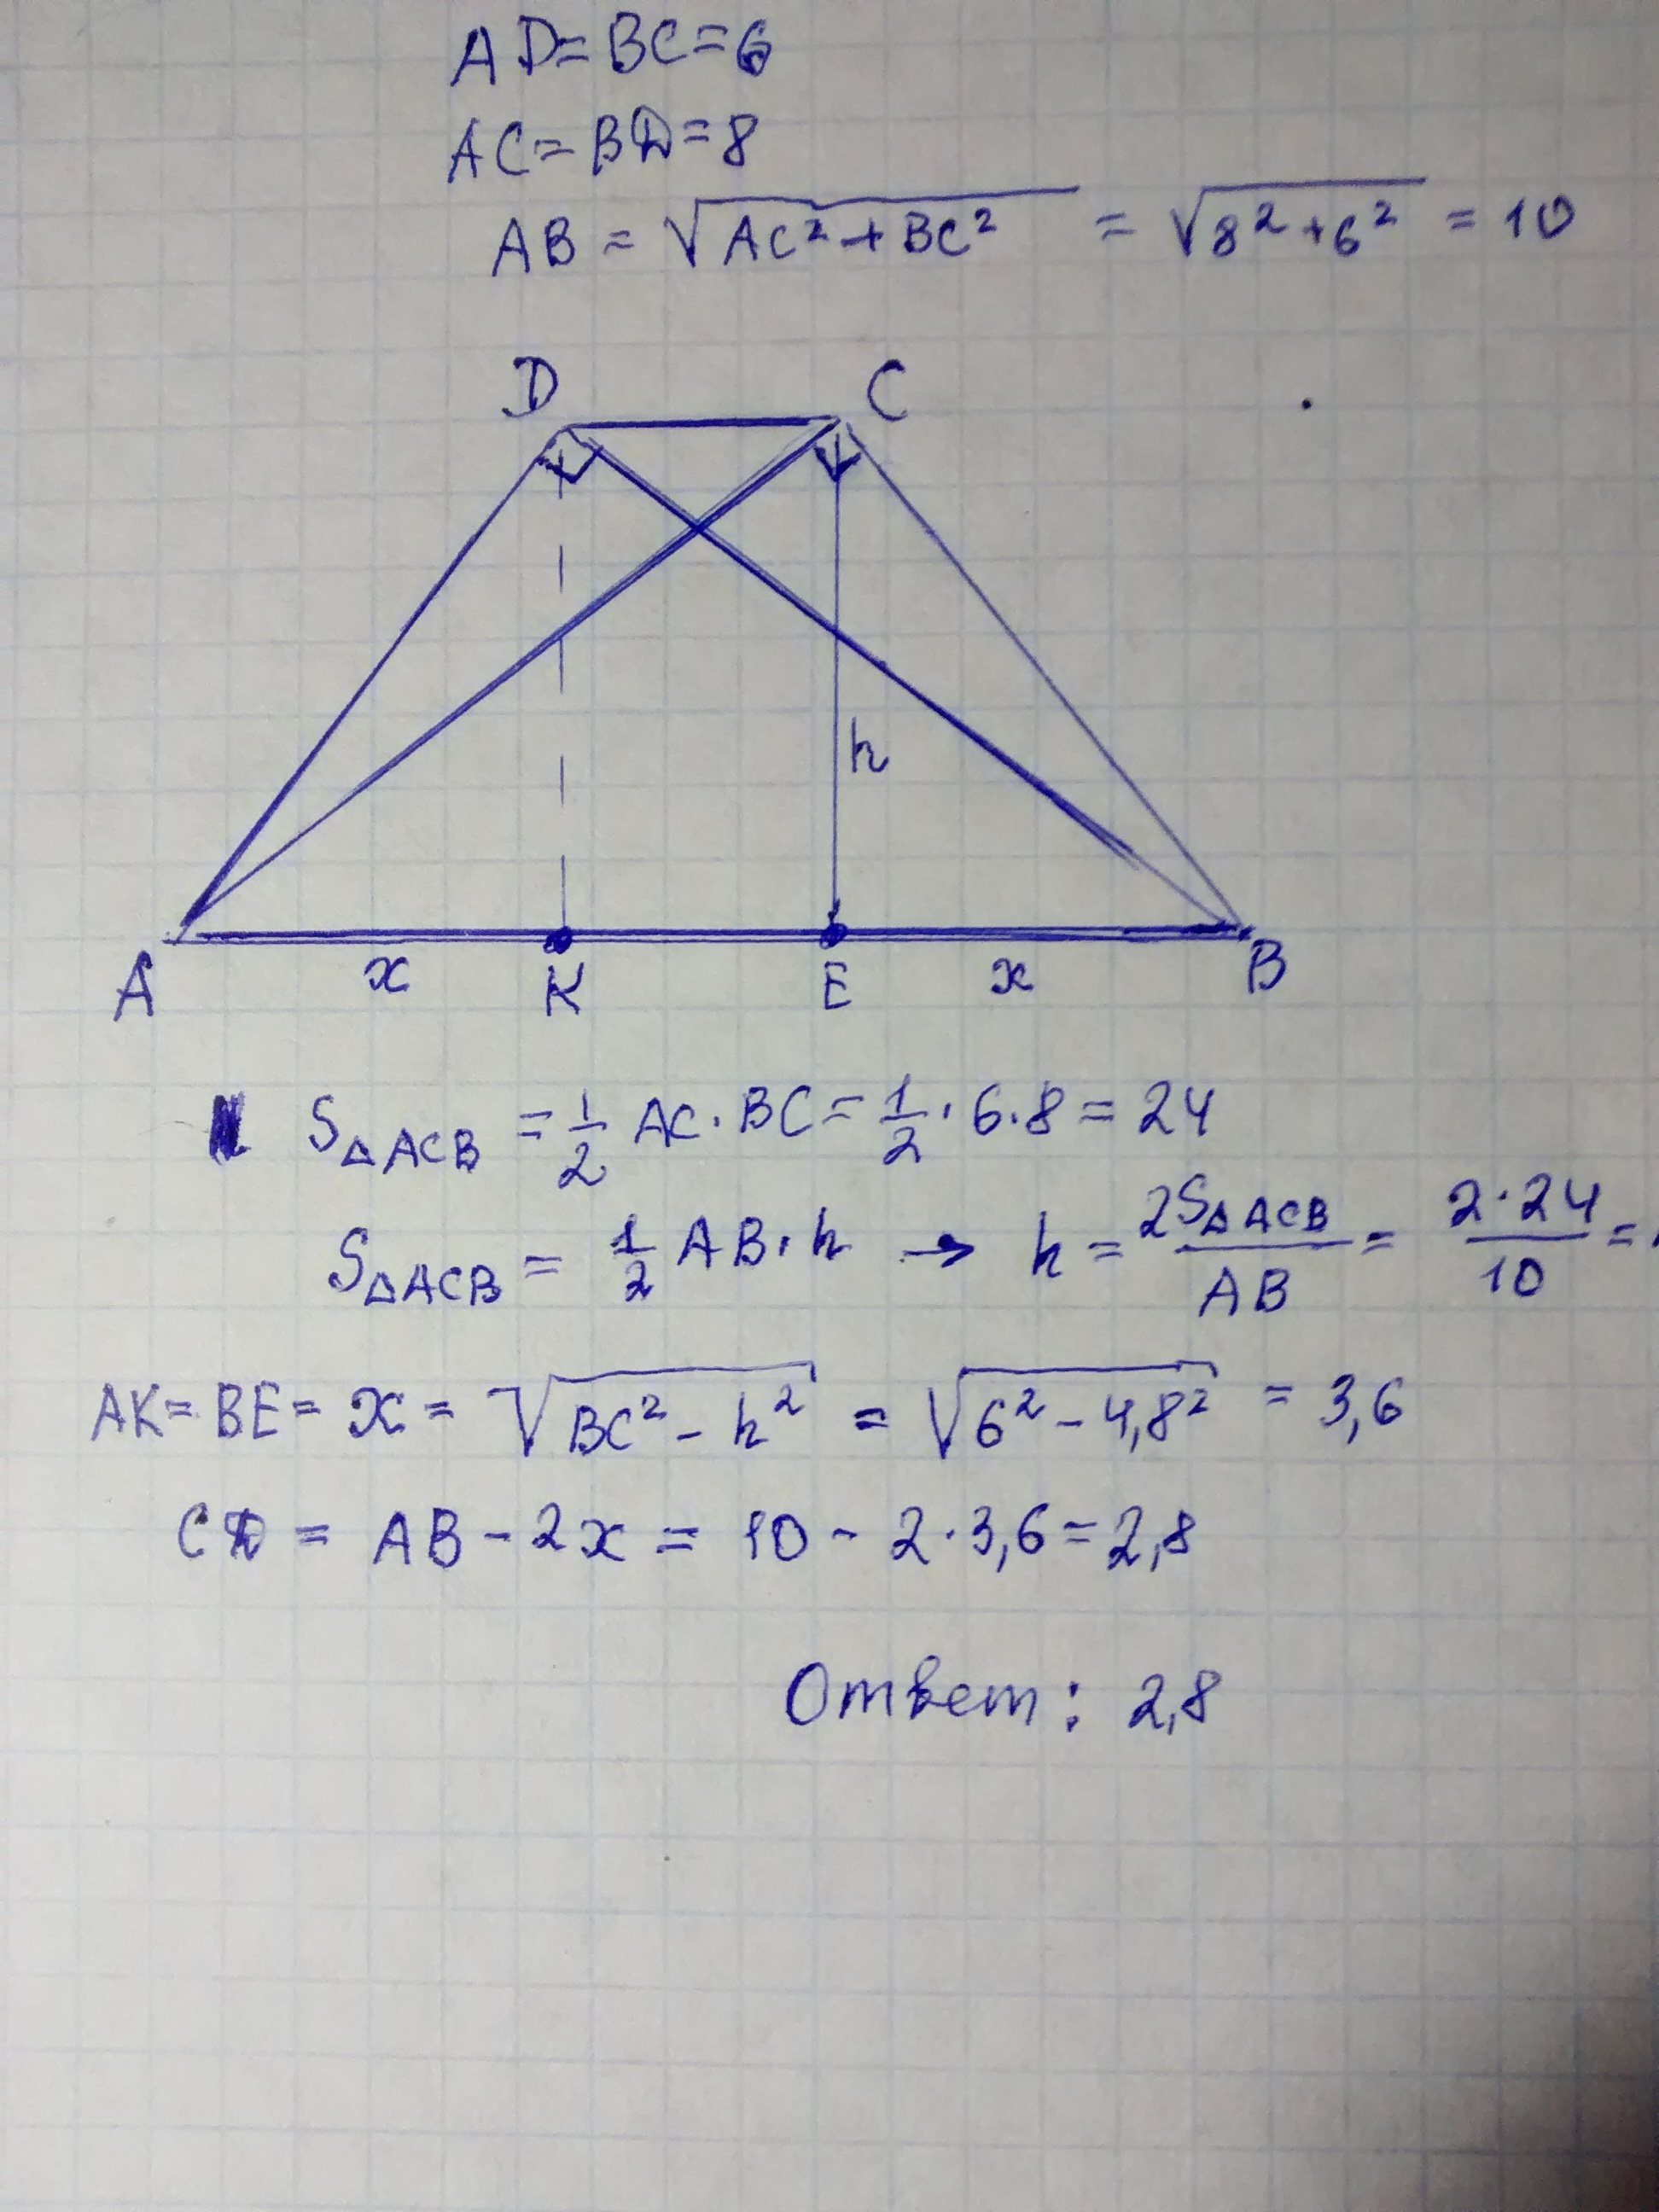 AD=BC=6
AC=BD=8
AB = √(AC²+BC²) = √(8²+6²) = 10
D C
h
A x K E x B
S△ACB = 1/2 AC·BC = 1/2 · 6·8 = 24
S△ACB = 1/2 AB·h → h = 2S△ACB/AB = 2·24/10 =
AK=BE= x = √(BC² - h²) = √(6² - 4,8²) = 3,6
CD = AB - 2x = 10 - 2·3,6=2,8
Ответ: 2,8